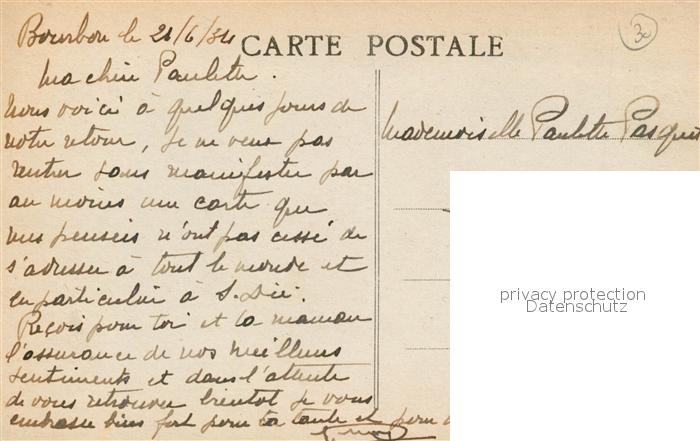 Bourbon le 21/6/34
CARTE POSTALE
Ma chère Paulette.
Nous voici à quelques jours de
notre retour, Je ne veux pas
rentrer sans manifester par
au moins une carte que
mes pensées n'ont pas cessé de
s'adresser à tout le monde et
en particulier à S. Dié.
Reçois pour toi et ta maman
l'assurance de nos meilleurs
sentiments et dans l'attente
de vous retrouver bientôt Je vous
embrasse bien fort pour ta tante et pour
Mademoiselle Paulette Pasquet
privacy protection
Datenschutz